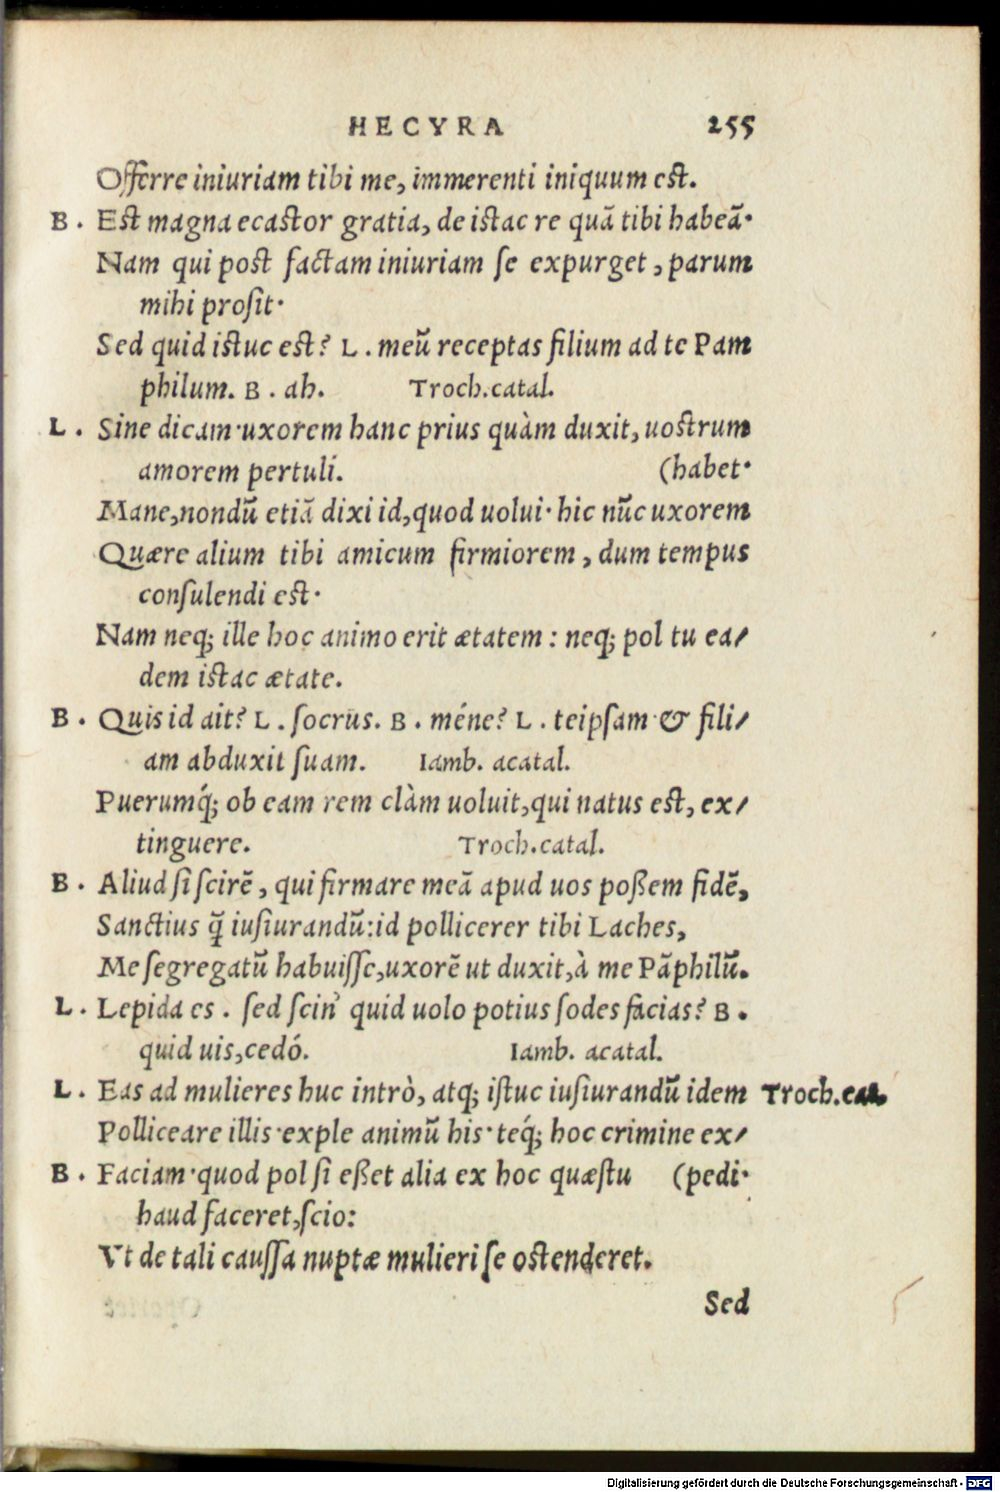 HECYRA 255
Offerre iniuriam tibi me, immerenti iniquum est.
B. Est magna ecastor gratia, de istac re quã tibi habeã·
Nam qui post factam iniuriam se expurget, parum
mihi prosit·
Sed quid istuc est? L. meũ receptas filium ad te Pam
philum. B. ah. Troch.catal.
L. Sine dicam·uxorem hanc prius quàm duxit, uostrum
amorem pertuli. (habet·
Mane,nondũ etiã dixi id,quod uolui· hic nũc uxorem
Quære alium tibi amicum firmiorem, dum tempus
consulendi est·
Nam neq; ille hoc animo erit ætatem: neq; pol tu ea/
dem istac ætate.
B. Quis id ait? L. socrus. B. méne? L. teipsam·& fili/
am abduxit suam. Iamb. acatal.
Puerumq́; ob eam rem clàm uoluit,qui natus est, ex/
tinguere. Troch.catal.
B. Aliud si scirẽ, qui firmare meã apud uos poßem fidẽ,
Sanctius q̃ iusiurandũ:id pollicerer tibi Laches,
Me segregatũ habuisse,uxorẽ ut duxit,à me Pãphilũ.
L. Lepida es. sed scin' quid uolo potius sodes facias? B.
quid uis,cedó. Iamb. acatal.
L. Eas ad mulieres huc intrò, atq; istuc iusiurandũ idem Troch.cat.
Polliceare illis·exple animũ his·teq́; hoc crimine ex/
B. Faciam·quod pol si eßet alia ex hoc quæstu (pedi·
haud faceret,scio:
Vt de tali caussa nuptæ mulieri se ostenderet.
Sed
Digitalisierung gefördert durch die Deutsche Forschungsgemeinschaft - DFG